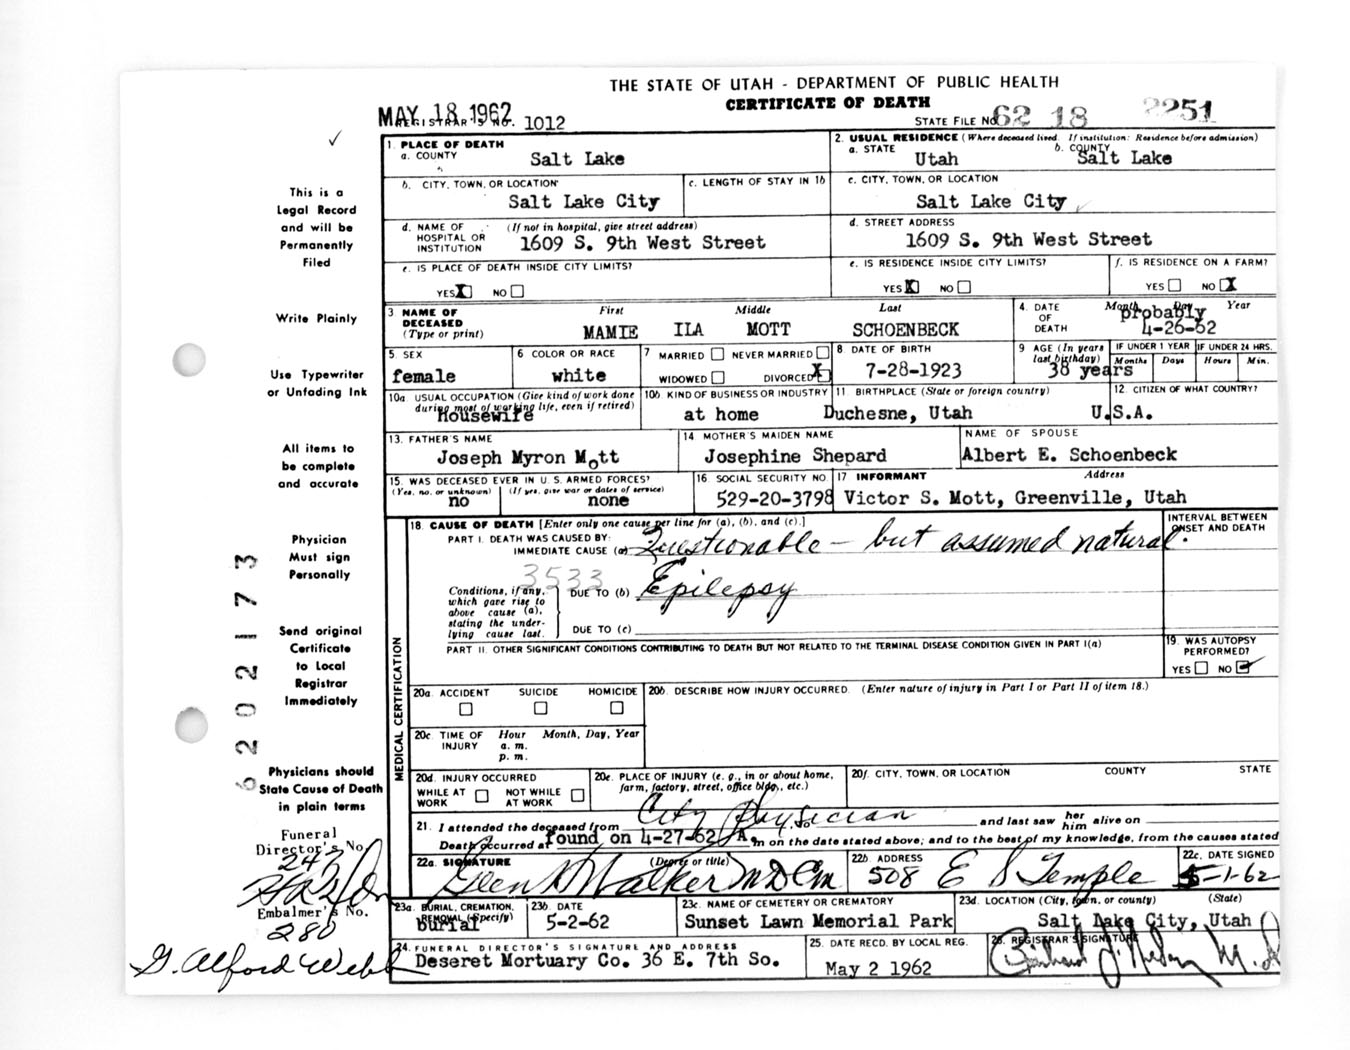 THE STATE OF UTAH - DEPARTMENT OF PUBLIC HEALTH
CERTIFICATE OF DEATH
MAY 18 1962
REGISTRAR'S NO. 1012
STATE FILE NO. 62 18 2251
This is a
Legal Record
and will be
Permanently
Filed
Write Plainly
Use Typewriter
or Unfading Ink
All items to
be complete
and accurate
Physician
Must sign
Personally
Send original
Certificate
to Local
Registrar
Immediately
Physicians should
State Cause of Death
in plain terms
Funeral
Director's No.
243
Embalmer's No.
280
G. Alford Webb
6202173
1. PLACE OF DEATH
a. COUNTY Salt Lake
2. USUAL RESIDENCE (Where deceased lived. If institution: Residence before admission)
a. STATE Utah b. COUNTY Salt Lake
b. CITY, TOWN, OR LOCATION Salt Lake City
c. LENGTH OF STAY IN 1b
c. CITY, TOWN, OR LOCATION Salt Lake City
d. NAME OF HOSPITAL OR INSTITUTION (If not in hospital, give street address) 1609 S. 9th West Street
d. STREET ADDRESS 1609 S. 9th West Street
e. IS PLACE OF DEATH INSIDE CITY LIMITS?
YES X NO
e. IS RESIDENCE INSIDE CITY LIMITS?
YES X NO
f. IS RESIDENCE ON A FARM?
YES NO X
3 NAME OF DECEASED (Type or print)
First Middle Last
MAMIE ILA MOTT SCHOENBECK
4. DATE OF DEATH Month Day Year
probably
4-26-62
5. SEX female
6 COLOR OR RACE white
7 MARRIED NEVER MARRIED
WIDOWED DIVORCED X
8 DATE OF BIRTH 7-28-1923
9 AGE (In years last birthday) 38 years
IF UNDER 1 YEAR Months Days
IF UNDER 24 HRS. Hours Min.
10a. USUAL OCCUPATION (Give kind of work done during most of working life, even if retired) Housewife
10b KIND OF BUSINESS OR INDUSTRY at home
11. BIRTHPLACE (State or foreign country) Duchesne, Utah
12. CITIZEN OF WHAT COUNTRY? U.S.A.
13. FATHER'S NAME Joseph Myron Mott
14 MOTHER'S MAIDEN NAME Josephine Shepard
NAME OF SPOUSE Albert E. Schoenbeck
15. WAS DECEASED EVER IN U.S. ARMED FORCES?
(Yes, no, or unknown) no (If yes, give war or dates of service) none
16. SOCIAL SECURITY NO. 529-20-3798
17 INFORMANT Address
Victor S. Mott, Greenville, Utah
MEDICAL CERTIFICATION
18. CAUSE OF DEATH [Enter only one cause per line for (a), (b), and (c).]
INTERVAL BETWEEN ONSET AND DEATH
PART I. DEATH WAS CAUSED BY:
IMMEDIATE CAUSE (a) Questionable - but assumed natural.
3533
Conditions, if any, which gave rise to above cause (a), stating the underlying cause last.
DUE TO (b) Epilepsy
DUE TO (c)
PART II. OTHER SIGNIFICANT CONDITIONS CONTRIBUTING TO DEATH BUT NOT RELATED TO THE TERMINAL DISEASE CONDITION GIVEN IN PART I(a)
19. WAS AUTOPSY PERFORMED?
YES NO
20a. ACCIDENT SUICIDE HOMICIDE
20b. DESCRIBE HOW INJURY OCCURRED. (Enter nature of injury in Part I or Part II of item 18.)
20c TIME OF INJURY Hour Month, Day, Year
a. m.
p. m.
20d. INJURY OCCURRED
WHILE AT WORK NOT WHILE AT WORK
20e. PLACE OF INJURY (e. g., in or about home, farm, factory, street, office bldg., etc.)
20f. CITY, TOWN, OR LOCATION COUNTY STATE
City Physician
21. I attended the deceased from , to and last saw her him alive on
Death occurred at found on 4-27-62 A. m on the date stated above; and to the best of my knowledge, from the causes stated
22a. SIGNATURE (Degree or title) Glen Walker MD Cm
22b. ADDRESS 508 E S Temple
22c. DATE SIGNED 5-1-62
23a. BURIAL, CREMATION, REMOVAL (Specify) burial
23b. DATE 5-2-62
23c. NAME OF CEMETERY OR CREMATORY Sunset Lawn Memorial Park
23d. LOCATION (City, town, or county) (State)
Salt Lake City, Utah
24. FUNERAL DIRECTOR'S SIGNATURE AND ADDRESS
Deseret Mortuary Co. 36 E. 7th So.
25. DATE RECD. BY LOCAL REG.
May 2 1962
26. REGISTRAR'S SIGNATURE